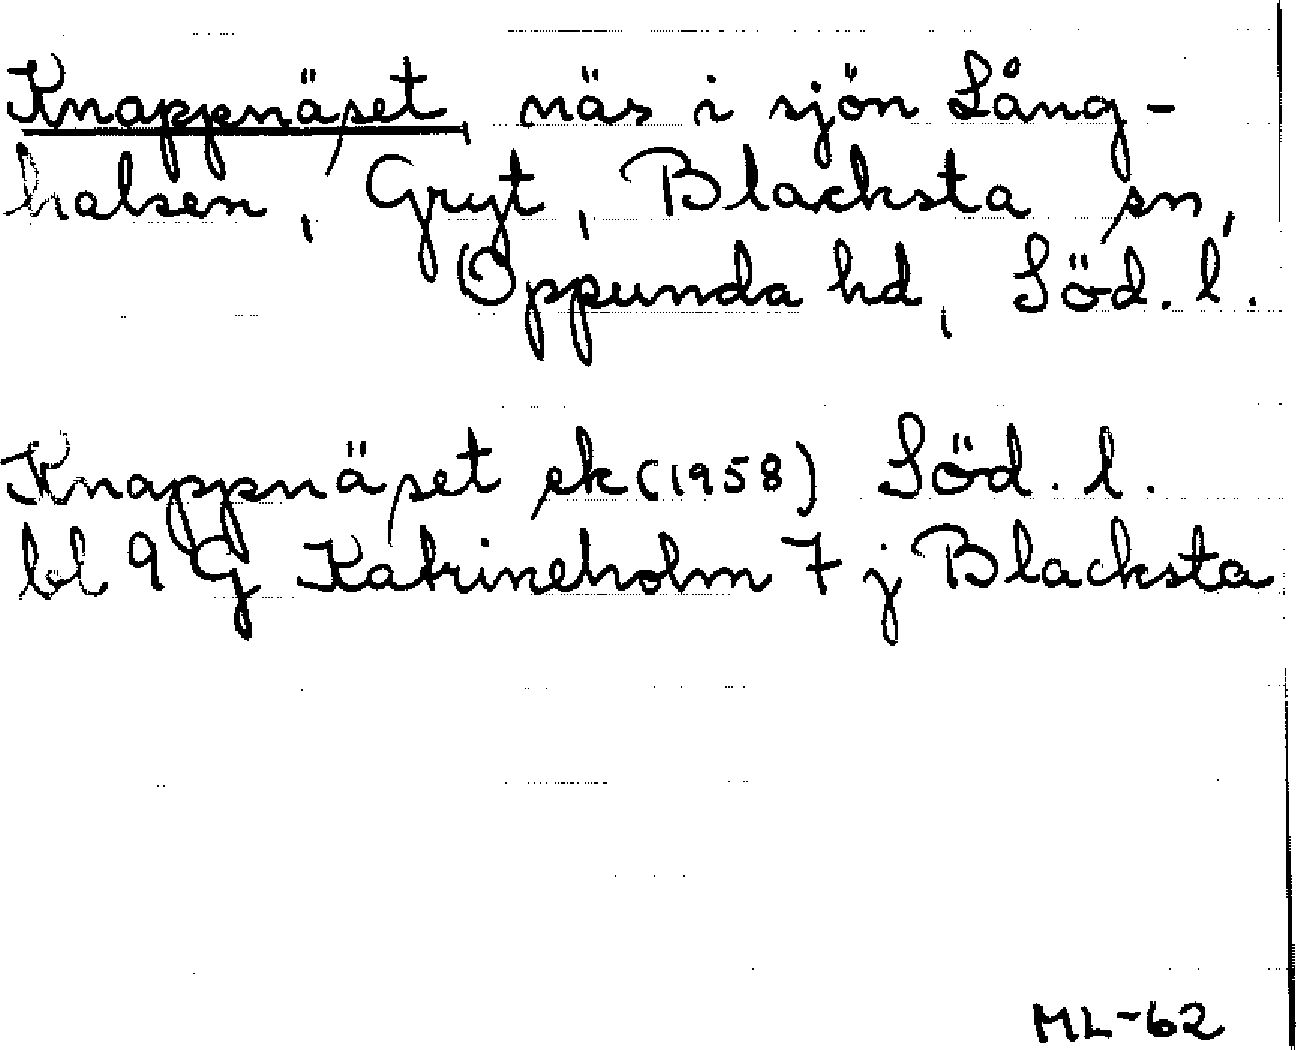 Knappnäset, näs i sjön Lång-
halsen, Gryt, Blacksta sn,
Oppunda hd, Söd. l.
Knappnäset ek (1958) Söd. l.
bl 9 G Katrineholm 7 j Blacksta
ML-62